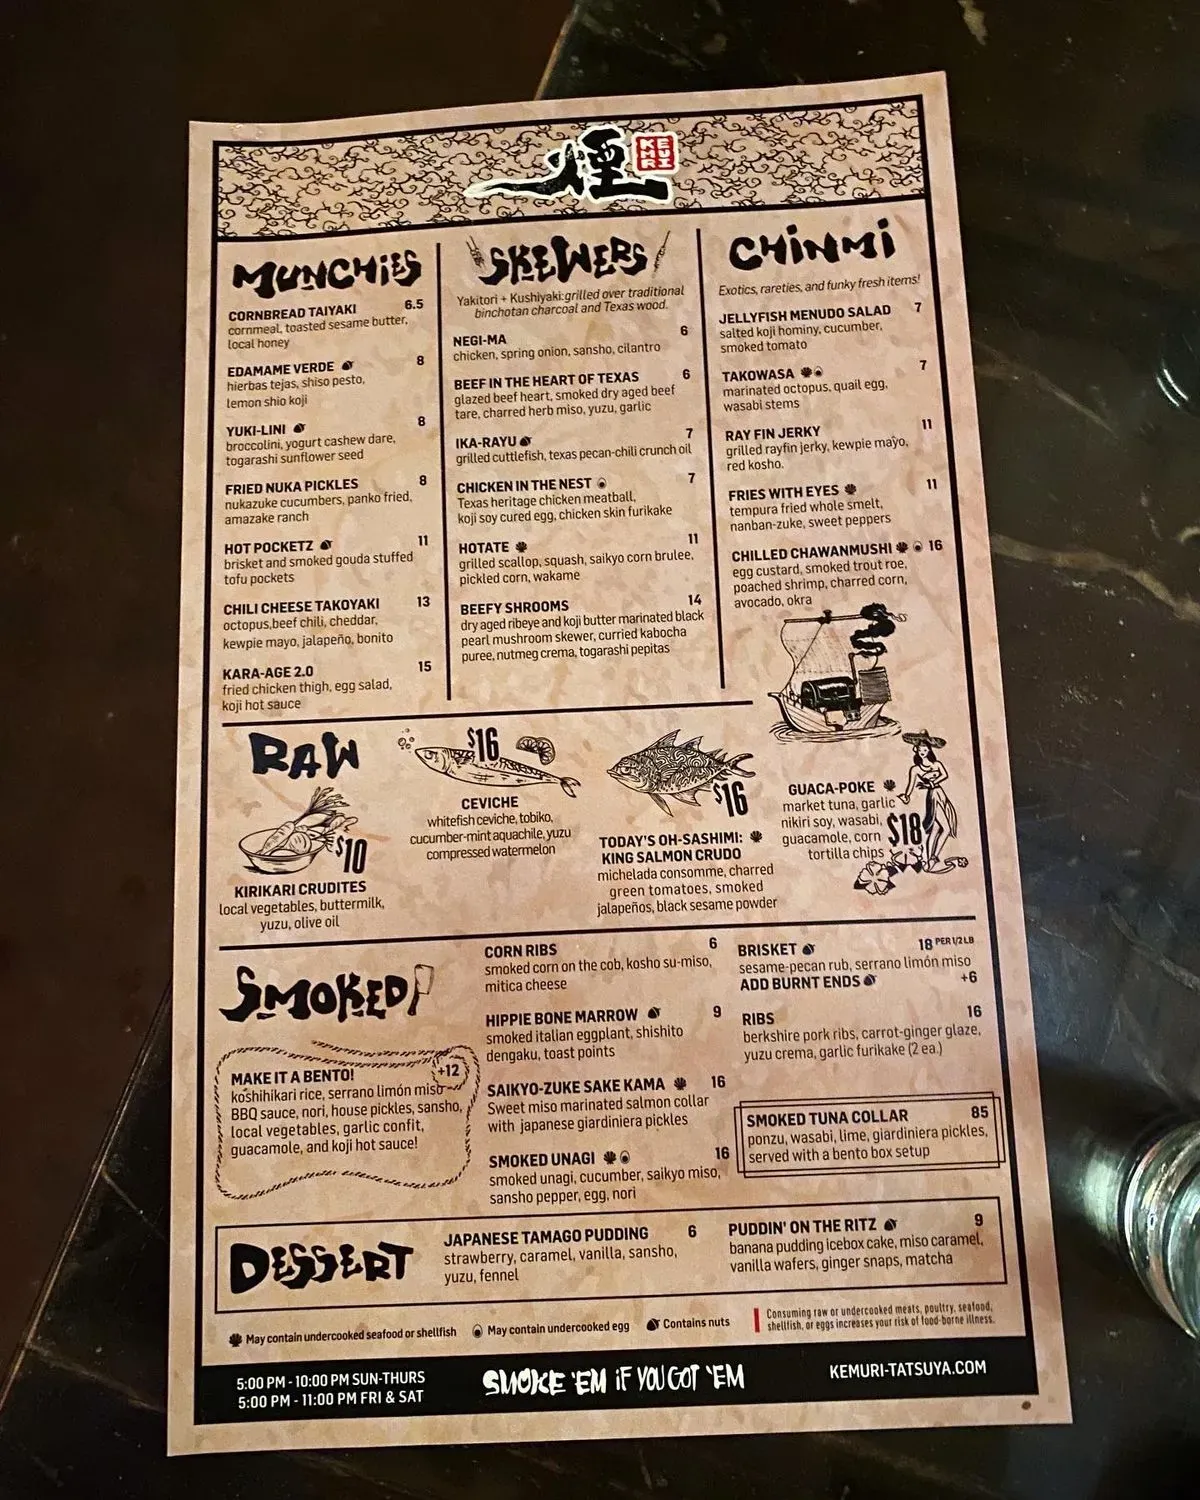 煙
KEMURI
MUNCHiES
CORNBREAD TAIYAKI 6.5
cornmeal, toasted sesame butter,
local honey
EDAMAME VERDE 8
hierbas tejas, shiso pesto,
lemon shio koji
YUKI-LINI 8
broccolini, yogurt cashew dare,
togarashi sunflower seed
FRIED NUKA PICKLES 8
nukazuke cucumbers, panko fried,
amazake ranch
HOT POCKETZ 11
brisket and smoked gouda stuffed
tofu pockets
CHILI CHEESE TAKOYAKI 13
octopus,beef chili, cheddar,
kewpie mayo, jalapeño, bonito
KARA-AGE 2.0 15
fried chicken thigh, egg salad,
koji hot sauce
SKEWERS
Yakitori + Kushiyaki:grilled over traditional
binchotan charcoal and Texas wood.
NEGI-MA 6
chicken, spring onion, sansho, cilantro
BEEF IN THE HEART OF TEXAS 6
glazed beef heart, smoked dry aged beef
tare, charred herb miso, yuzu, garlic
IKA-RAYU 7
grilled cuttlefish, texas pecan-chili crunch oil
CHICKEN IN THE NEST 7
Texas heritage chicken meatball,
koji soy cured egg, chicken skin furikake
HOTATE 11
grilled scallop, squash, saikyo corn brulee,
pickled corn, wakame
BEEFY SHROOMS 14
dry aged ribeye and koji butter marinated black
pearl mushroom skewer, curried kabocha
puree, nutmeg crema, togarashi pepitas
CHiNMi
Exotics, rareties, and funky fresh items!
JELLYFISH MENUDO SALAD 7
salted koji hominy, cucumber,
smoked tomato
TAKOWASA 7
marinated octopus, quail egg,
wasabi stems
RAY FIN JERKY 11
grilled rayfin jerky, kewpie mayo,
red kosho.
FRIES WITH EYES 11
tempura fried whole smelt,
nanban-zuke, sweet peppers
CHILLED CHAWANMUSHI 16
egg custard, smoked trout roe,
poached shrimp, charred corn,
avocado, okra
RAW
$10
KIRIKARI CRUDITES
local vegetables, buttermilk,
yuzu, olive oil
$16
CEVICHE
whitefish ceviche, tobiko,
cucumber-mint aquachile, yuzu
compressed watermelon
$16
TODAY'S OH-SASHIMI:
KING SALMON CRUDO
michelada consomme, charred
green tomatoes, smoked
jalapeños, black sesame powder
GUACA-POKE
market tuna, garlic
nikiri soy, wasabi,
guacamole, corn
tortilla chips
$18
SMOKED
MAKE IT A BENTO! +12
koshihikari rice, serrano limón miso
BBQ sauce, nori, house pickles, sansho,
local vegetables, garlic confit,
guacamole, and koji hot sauce!
CORN RIBS 6
smoked corn on the cob, kosho su-miso,
mitica cheese
HIPPIE BONE MARROW 9
smoked italian eggplant, shishito
dengaku, toast points
SAIKYO-ZUKE SAKE KAMA 16
Sweet miso marinated salmon collar
with japanese giardiniera pickles
SMOKED UNAGI 16
smoked unagi, cucumber, saikyo miso,
sansho pepper, egg, nori
BRISKET 18 PER 1/2 LB
sesame-pecan rub, serrano limón miso
ADD BURNT ENDS +6
RIBS 16
berkshire pork ribs, carrot-ginger glaze,
yuzu crema, garlic furikake (2 ea.)
SMOKED TUNA COLLAR 85
ponzu, wasabi, lime, giardiniera pickles,
served with a bento box setup
DESSERT
JAPANESE TAMAGO PUDDING 6
strawberry, caramel, vanilla, sansho,
yuzu, fennel
PUDDIN' ON THE RITZ 9
banana pudding icebox cake, miso caramel,
vanilla wafers, ginger snaps, matcha
May contain undercooked seafood or shellfish
May contain undercooked egg
Contains nuts
Consuming raw or undercooked meats, poultry, seafood,
shellfish, or eggs increases your risk of food-borne illness.
5:00 PM - 10:00 PM SUN-THURS
5:00 PM - 11:00 PM FRI & SAT
SMOKE 'EM iF YOU GOT 'EM
KEMURI-TATSUYA.COM